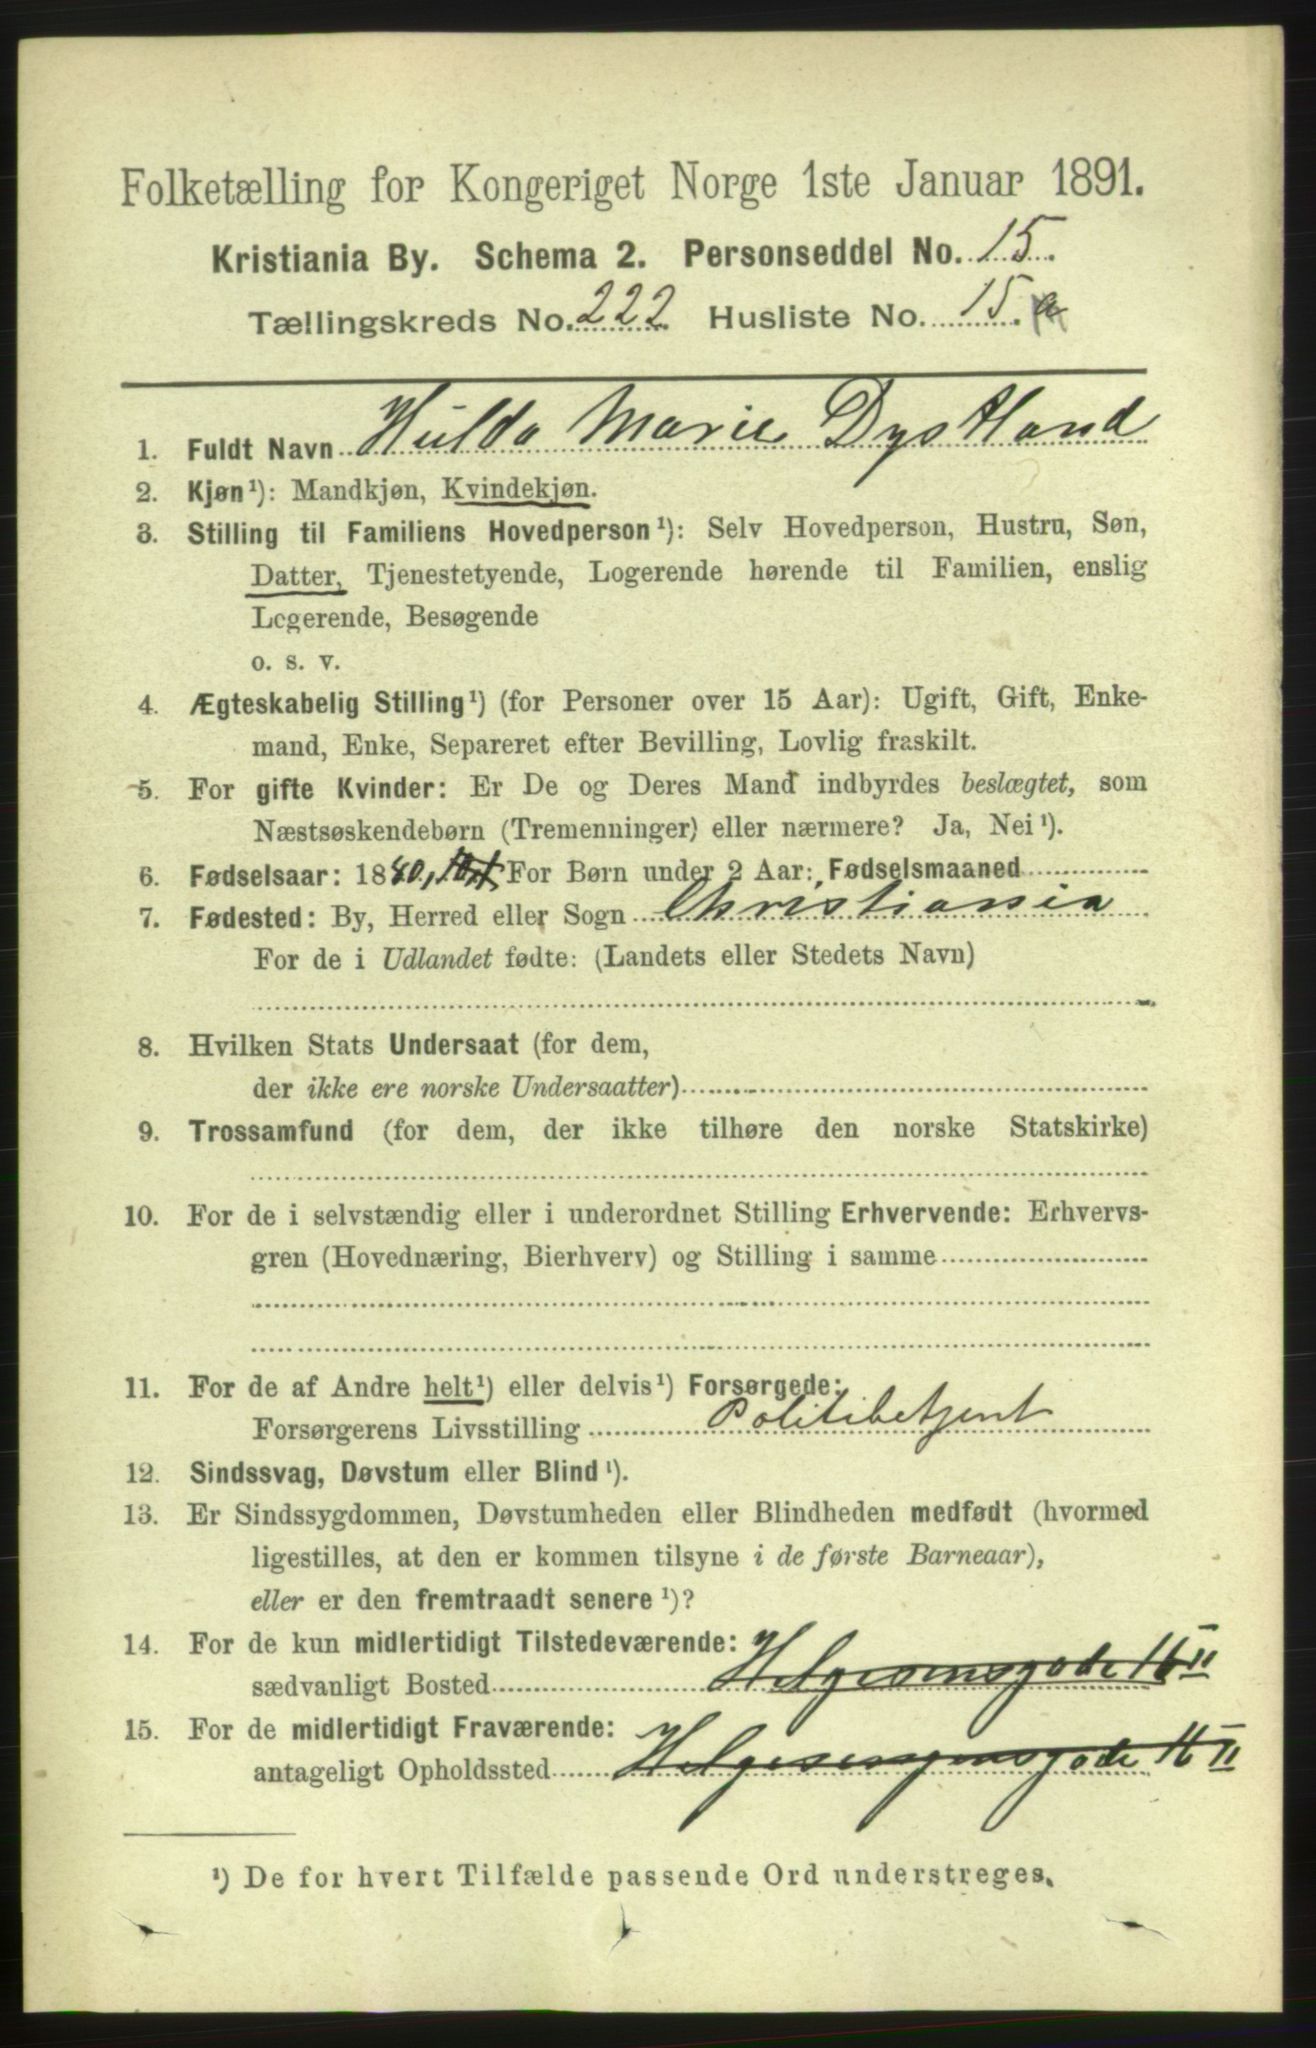 Folketælling for Kongeriget Norge 1ste Januar 1891.
Kristiania By. Schema 2. Personseddel No. 15.
Tællingskreds No. 222 Husliste No. 15.
1. Fuldt Navn Hulda Marie Dystland
2. Kjøn¹): Mandkjøn, Kvindekjøn.
3. Stilling til Familiens Hovedperson¹): Selv Hovedperson, Hustru, Søn,
Datter, Tjenestetyende, Logerende hørende til Familien, enslig
Logerende, Besøgende
o. s. v.
4. Ægteskabelig Stilling¹) (for Personer over 15 Aar): Ugift, Gift, Enke-
mand, Enke, Separeret efter Bevilling, Lovlig fraskilt.
5. For gifte Kvinder: Er De og Deres Mand indbyrdes beslægtet, som
Næstsøskendebørn (Tremenninger) eller nærmere? Ja, Nei¹).
6. Fødselsaar: 1880, For Børn under 2 Aar: Fødselsmaaned
7. Fødested: By, Herred eller Sogn Christiania
For de i Udlandet fødte: (Landets eller Stedets Navn)
8. Hvilken Stats Undersaat (for dem,
der ikke ere norske Undersaatter)
9. Trossamfund (for dem, der ikke tilhøre den norske Statskirke)
10. For de i selvstændig eller i underordnet Stilling Erhvervende: Erhvervs-
gren (Hovednæring, Bierhverv) og Stilling i samme
11. For de af Andre helt¹) eller delvis¹) Forsørgede:
Forsørgerens Livsstilling Politibetjent
12. Sindssvag, Døvstum eller Blind¹).
13. Er Sindssygdommen, Døvstumheden eller Blindheden medfødt (hvormed
ligestilles, at den er kommen tilsyne i de første Barneaar),
eller er den fremtraadt senere¹)?
14. For de kun midlertidigt Tilstedeværende:
sædvanligt Bosted Helgesensgade 16 II
15. For de midlertidigt Fraværende:
antageligt Opholdssted 16 II
¹) De for hvert Tilfælde passende Ord understreges.